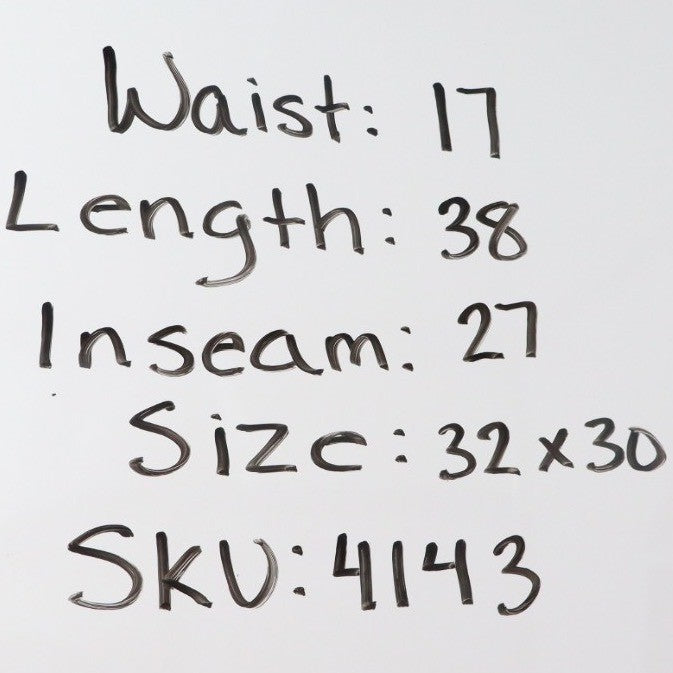 Waist: 17
Length: 38
Inseam: 27
Size: 32x30
SKU: 4143